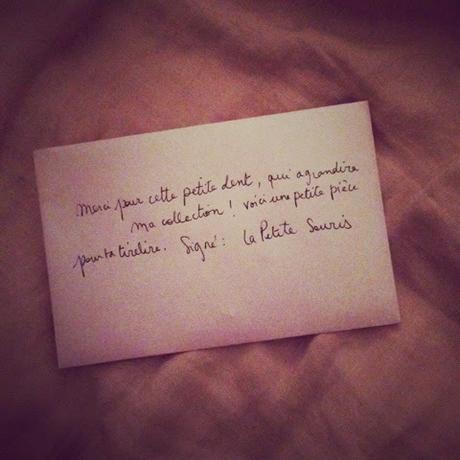 Merci pour cette petite dent, qui agrandira
ma collection ! Voici une petite pièce
pour ta tirelire. Signé : La Petite Souris